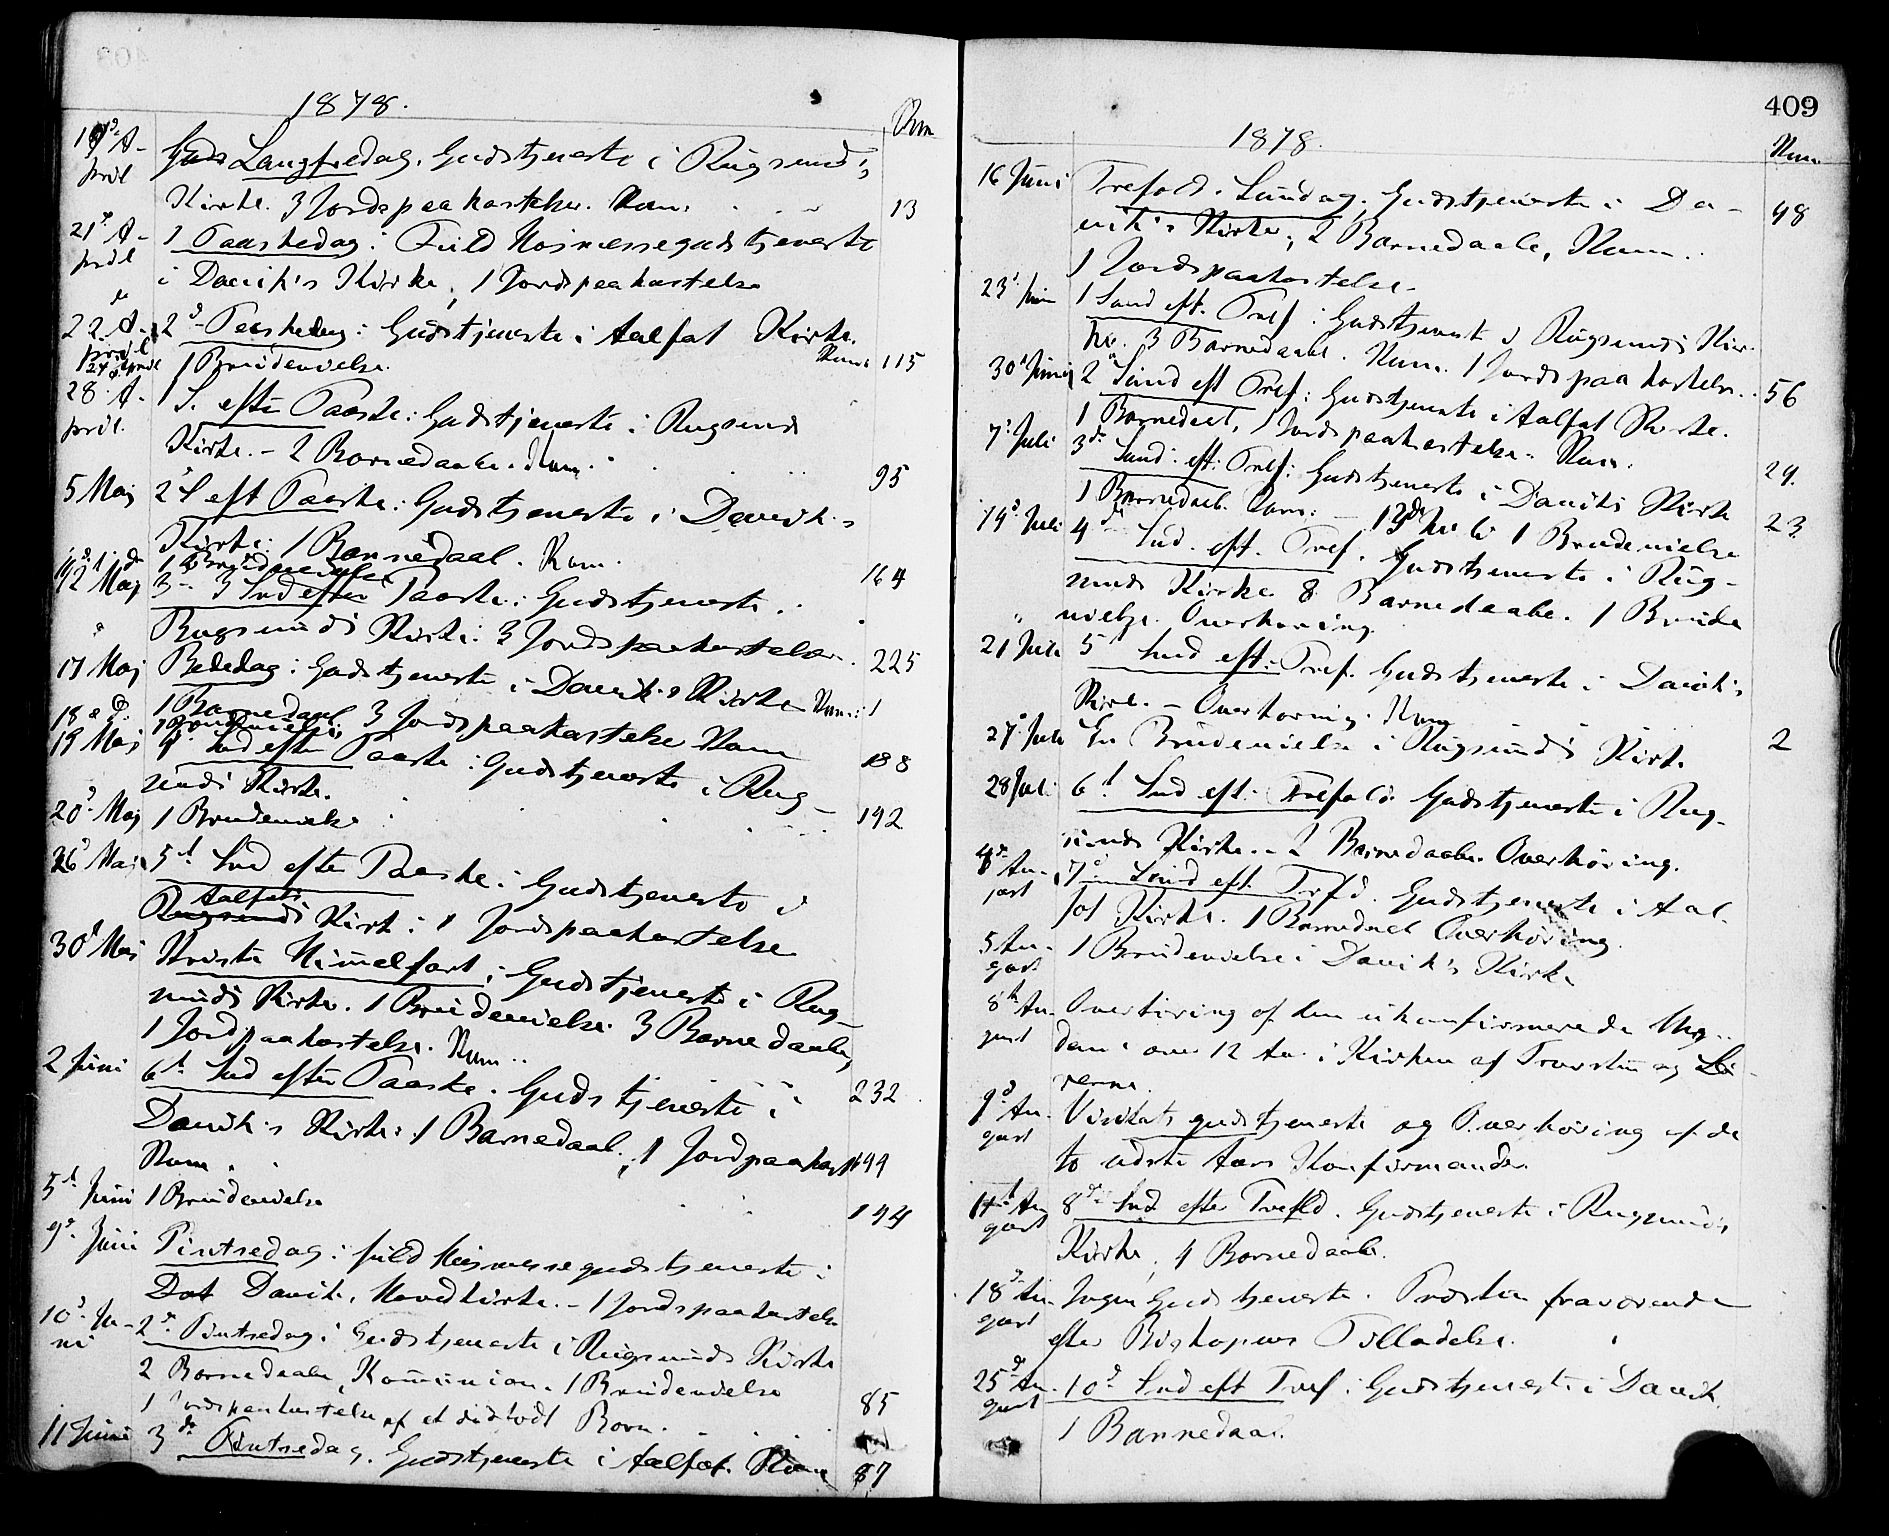 1878.
Kom
19de A-
pril
Langfredag. Gudstjeneste i Rugsund's
Kirke. 3 Jordspaakastelser. Kom. 13
21de A-
pril
1 Paaskedag: Fuld Høimessegudstjeneste
i Davik's Kirke, 1 Jordspaakastelse
22de A-
pril
2d Paaskedag: Gudstjeneste i Aalfot Kirke.
Kom. 115
24de April 1 Brudevielse.
28 A-
pril.
1 S. efter Paaske: Gudstjeneste i Rugsund
Kirke. - 2 Barnedaabe. Kom. 95
5 Maj 2 S eft Paaske: Gudstjeneste i Davik's
Kirke: 1 Barnedaab. Kom. 164
1 Brudevielse
12 Maj 3 Snd efter Paaske: Gudstjeneste
Rugsunds Kirke: 3 Jordspaakastelser. 225
17 Maj Bededag: Gudstjeneste i Davik's Kirke Kom: 1
1 Barnedaab 3 Jordspaakastelse Kom 188
18 d. 1 Brudevielse
19 Maj 4 Snd efter Paaske: Gudstjeneste i Rug-
sunds Kirke.
20 Maj 1 Brudevielse 192
26 Mai 5t Snd efter Paaske: Gudstjeneste i
Aalfots
Rugsunds Kirk: 1 Jordspaakastelse
30 Mai Kristi Himmelfart: Gudstjeneste i Rug-
sunds Kirke. 1 Brudevielse. 3 Barnedaabe,
1 Jordpaakastelse. Kom. 232
2 Juni 6t Snd efter Paaske. Gudstjeneste i
Davik's Kirke: 1 Barnedaab, 1 Jordpaakas
Kom. 144
5t Juni 1 Brudevielse 144
9d Juni Pintsedag: fuld Høimessegudstjeneste i
Davik. Hovedkirke. - 1 Jordspaakastelse
10d Ju-
ni
2d Pintsedag: Gudstjeneste i Rugsunds Kirke
2 Barnedaabe, Kommunion. 1 Brudevielse 85
1 Jordspaakastelse af et dødfødt Barn.
11 Juni 3de Pintsedag. Gudstjeneste i Aalfot. Kom 87
409
1878.
Kom.
16 Juni Trefold. Sundag. Gudstjeneste i Da- 48
vik's Kirke, 2 Barnedaabe, Kom.
1 Jordspaakastelse.
23 Juni 1 Sund eft. Tref: Gudstjeneste i Rugsunds Kir-
ke. 3 Barnedaabe. Kom. 1 Jordspaakastelse. 56
30 Juni 2 Sund eft Tref: Gudstjeneste i Aalfot Kirke.
1 Barnedaab, 1 Jordspaakastelse. Kom. 29.
7 Juli 3de Sund. eft. Tref: Gudstjeneste i Daviks Kirke
1 Barnedaab. Kom: - 13de Juli 1 Brudevielse 23
14 Juli 4de Snd. eft. Tref. Gudstjeneste i Rug-
sunds Kirke 8 Barnedaabe. 1 Brude
vielse. Overhøring.
21 Juli 5 Snd eft. Tref. Gudstjeneste i Davik's
Kirke. - Overhøring. Kom
27 Juli En Brudevielse i Rugsunds Kirke 2
28 Juli 6t Snd eft. Trefold. Gudstjeneste i Rug-
sunds Kirke. - 2 Barnedaabe. Overhøring.
4de Au-
gust
7 Sund eft. Trfd. Gudstjeneste i Aal-
fot Kirke. 1 Barnedaab Overhøring.
5 Au-
gust
1 Brudevielse i Davik's Kirke
8de Au-
gust
Overhøring af den ukonfirmerede Ung-
dom over 12 Aar i Kirken af Provsten og Læ-
rerne.
9d Au-
gust
Visitatsgudstjeneste og Overhøring af de
to sidste Aars Konfirmander.
11te Au-
gust
8de Snd efter Trefld. Gudstjeneste i Rugsunds
Kirke, 4 Barnedaabe.
18de Au-
gust
Ingen Gudstjeneste. Præsten fraværende
efter Biskopens Tilladelse.
25de Au-
gust
10d Snd eft Tref: Gudstjeneste i Davik
1 Barnedaab.